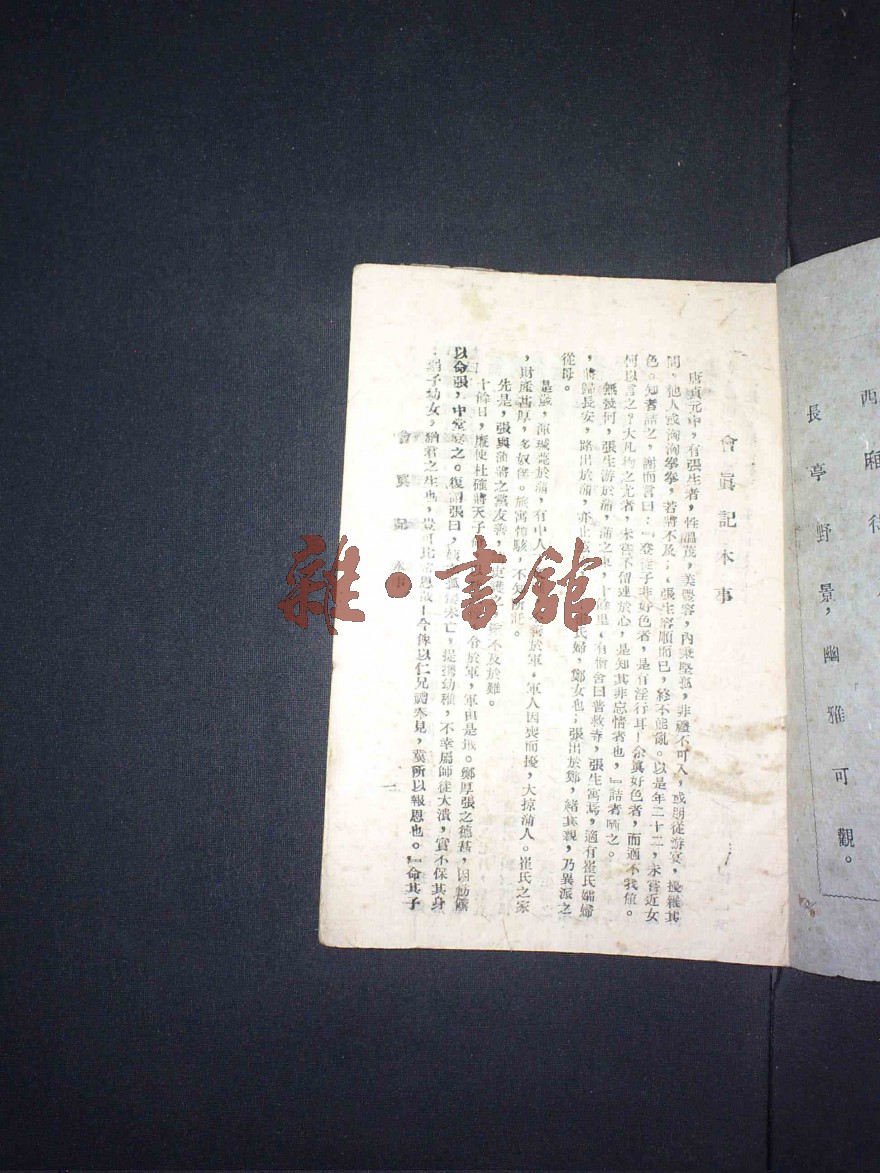 西廂待
長亭野景，幽雅可觀。
會真記本事
唐貞元中，有張生者，性溫茂，美豐容，內秉堅孤，非禮不可入，或朋從游宴，擾雜其
間，他人或洶洶拳拳，若將不及；張生容順而已，終不能亂。以是年二十二，未嘗近女
色。知者詰之，謝而言曰：『登徒子非好色者，是有淫行耳！余真好色者，而適不我值。
何以言之？大凡物之尤者，未嘗不留連於心，是知其非忘情者也，』詰者哂之。
無幾何，張生游於蒲，蒲之東，十餘里，有僧舍曰普救寺，張生寓焉，適有崔氏孀婦
，將歸長安，路出於蒲，亦止氏婦，鄭女也；張出於鄭，緒其親，乃異派之
從母。
是歲，渾瑊薨於蒲，有中人善於軍，軍人因喪而擾，大掠蒲人。崔氏之家
，財產甚厚，多奴僕。旅寓惶駭，不知所托。
先是，張與蒲將之黨友善，不及於難。
十餘日，廉使杜確將天子令於軍，軍由是戢。鄭厚張之德甚，因飭饌
以命張，中堂宴之。復謂張曰，孤未亡，提攜幼稚，不幸屬師徒大潰，實不保其身
，弱子幼女，猶君之生也，豈可比常恩哉！今俾以仁兄禮奉見，冀所以報恩也。』命其子
會真記本事
一
雜·書館